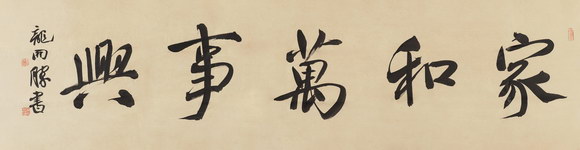 家和萬事興
龍雨勝書